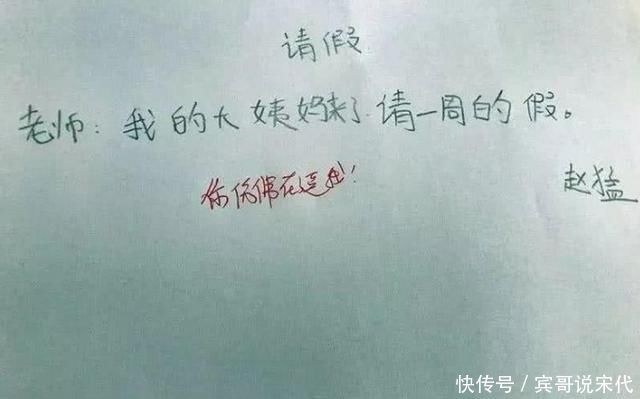 请假
老师：我的大姨妈来了请一周的假。
你仿佛在逗我！
赵猛
快传号／宾哥说宋代